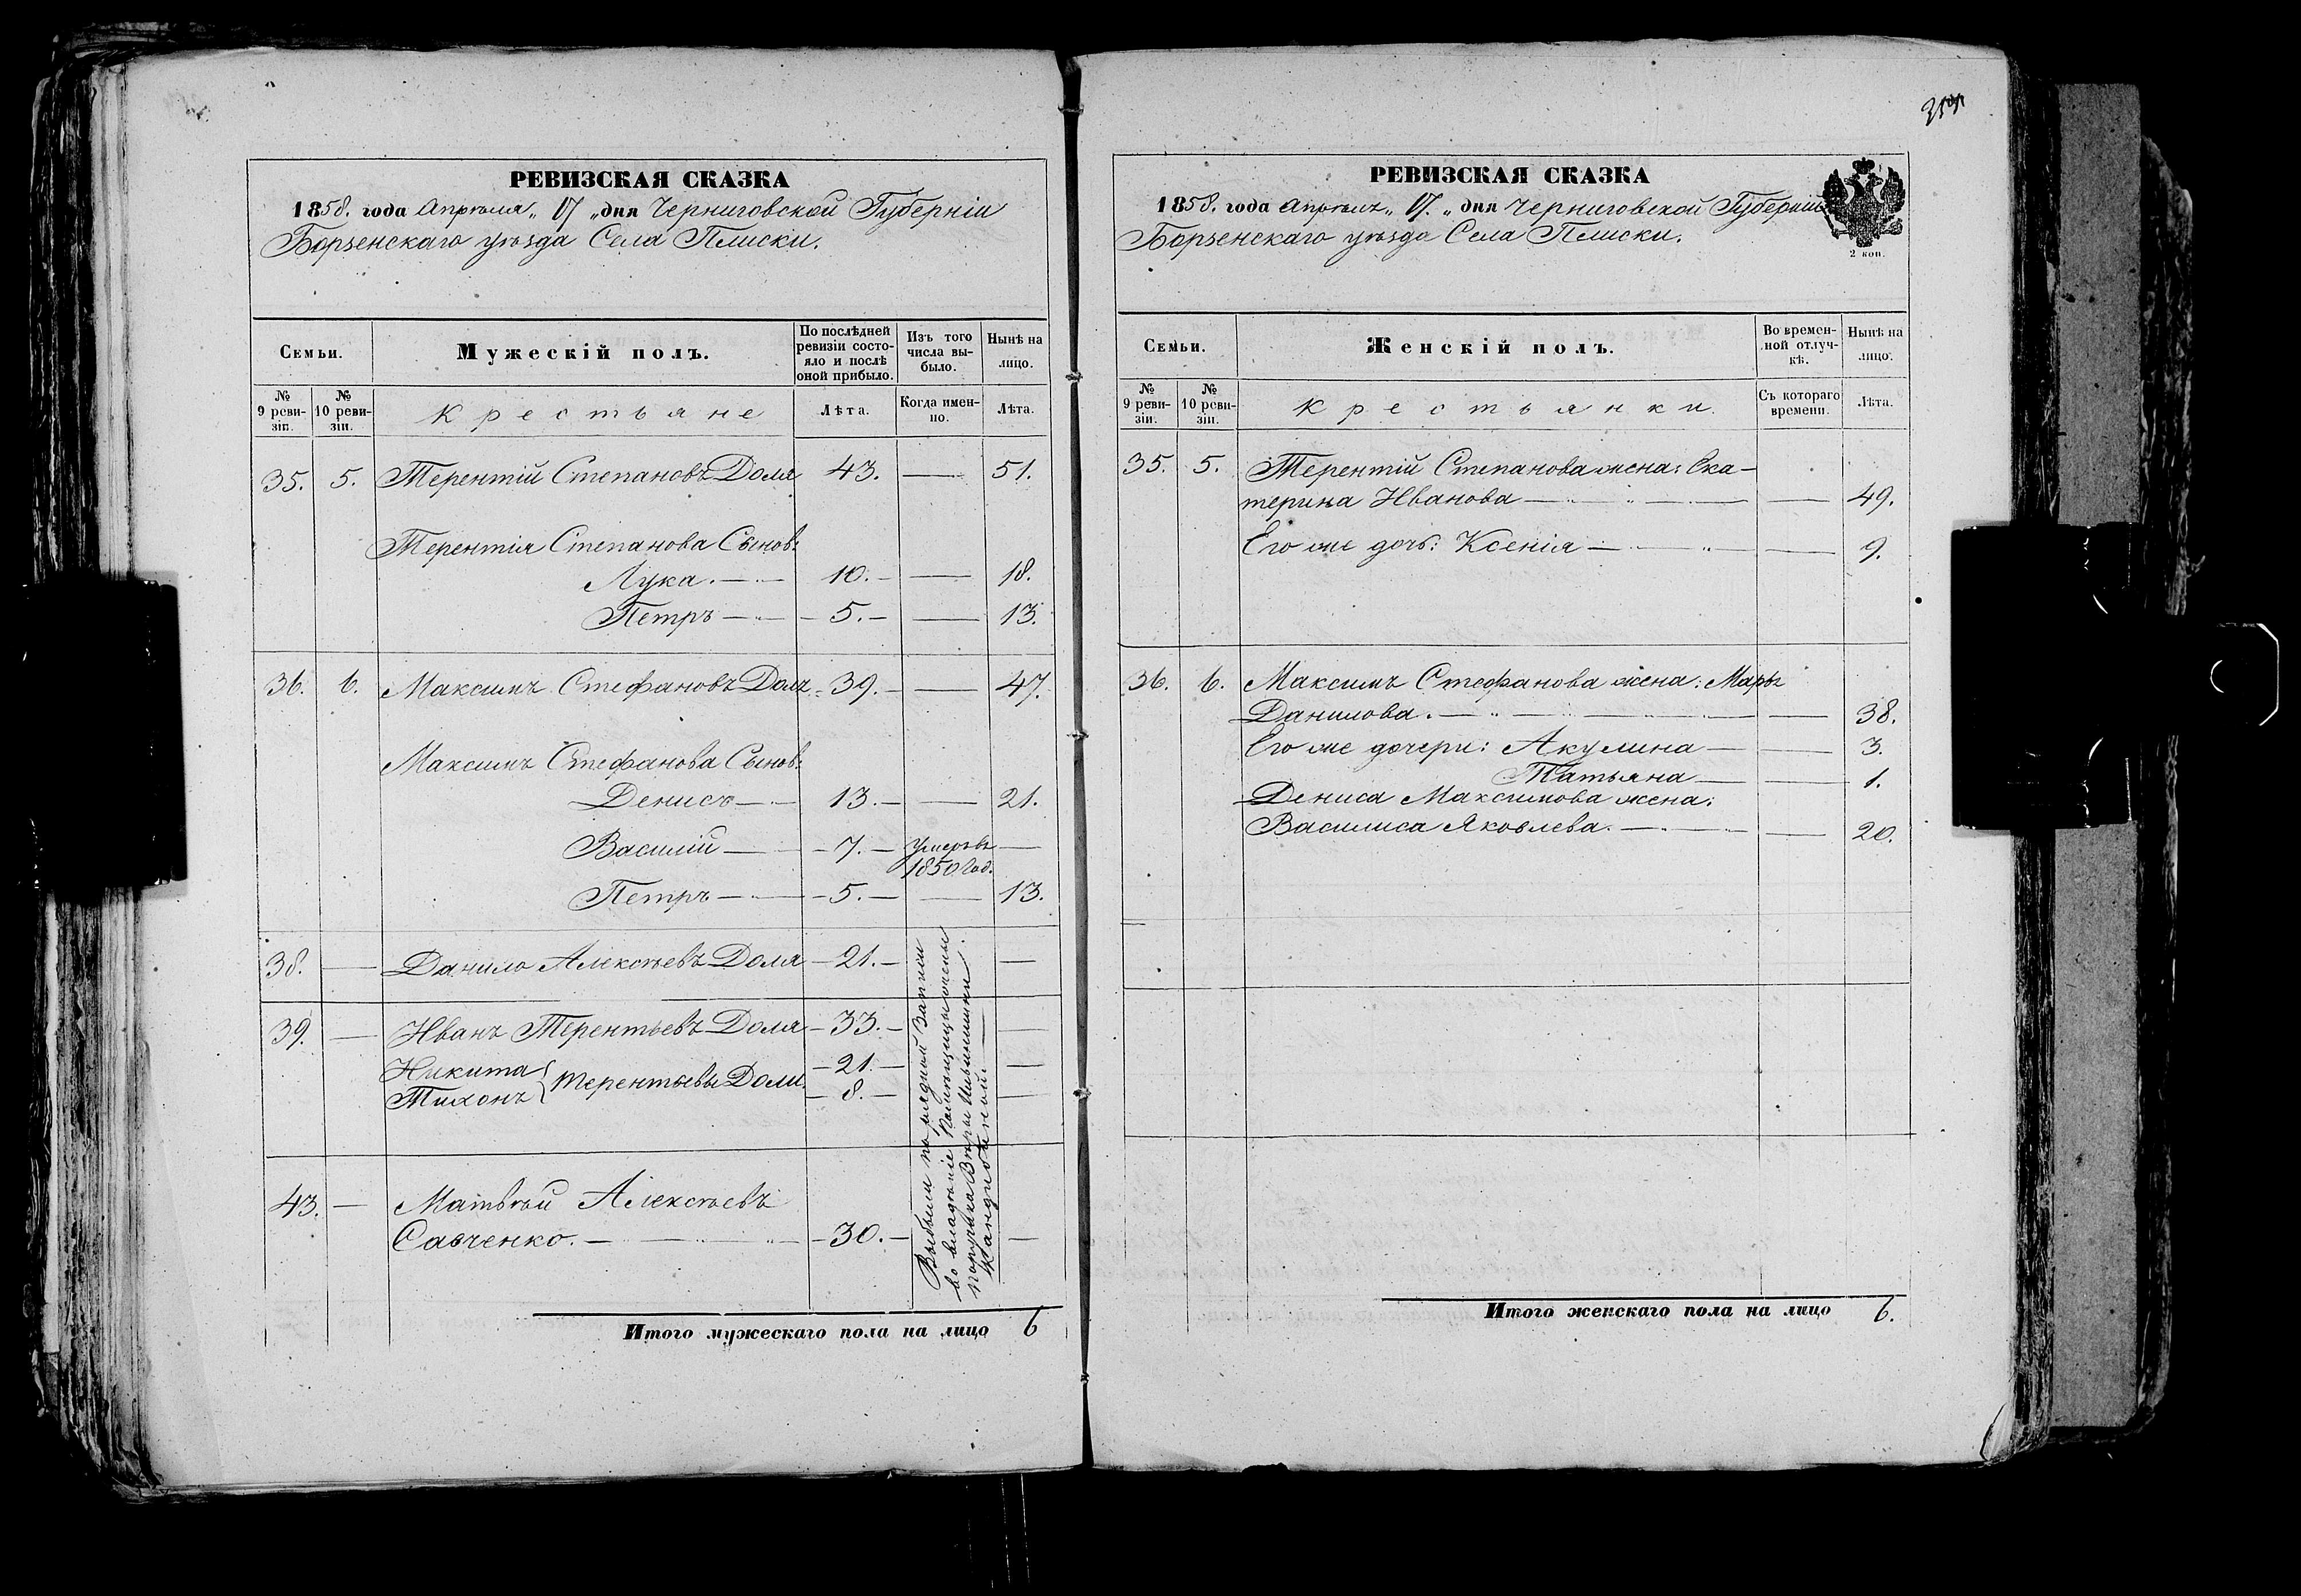 РЕВИЗСКАЯ СКАЗКА
1858. года Апрѣля „ 17 „ дня Черниговской Губерніи
Борзенскаго уѣзда Села Плиски.
Семьи.
Мужескій полъ.
По послѣдней ревизіи состояло и послѣ оной прибыло.
Изъ того числа выбыло.
Нынѣ на лицо.
№ 9 ревизіи.
№ 10 ревизіи.
Крестьяне
Лѣта.
Когда именно.
Лѣта.
35. 5. Терентій Степановъ Доля 43. — 51.
Терентія Степанова Сынов:
Лука. — 10. — 18.
Петръ — 5. — 13.
36. 6. Максимъ Стефановъ Доля 39. — 47.
Максимъ Стефанова Сынов:
Денисъ — 13. — 21.
Василій — 7. — умеръ въ —
1850 год.
Петръ — 5. — 13.
38. — Данило Алексѣевъ Доля — 21. — —
39. — Иванъ Терентьевъ Доля — 33. — —
Никита { — 21. — —
Тихонъ { Терентьевы Доли. — 8. — —
43. — Матвѣй Алексѣевъ
Савченко. — 30. — —
Выбыли по рядной Записи
во владѣніе Помѣщицы жены
поручика Вѣры Ильинишны
Итого мужескаго пола на лицо 6
РЕВИЗСКАЯ СКАЗКА
1858. года Апрѣля „ 17. „ дня Черниговской Губерніи
Борзенскаго уѣзда Села Плиски.
2 коп.
Семьи.
Женскій полъ.
Во временной отлучкѣ.
Нынѣ на лицо.
№ 9 ревизіи.
№ 10 ревизіи.
Крестьянки.
Съ котораго времени.
Лѣта.
35. 5. Терентій Степанова жена: Ека-
терина Иванова — — 49.
Его же дочь: Ксенія — — 9.
36. 6. Максимъ Стефанова жена: Марья
Данилова. — — 38.
Его же дочери: Акулина — — 3.
Татьяна — — 1.
Дениса Максимова жена:
Василиса Яковлева. — — 20.
Итого женскаго пола на лицо 6.